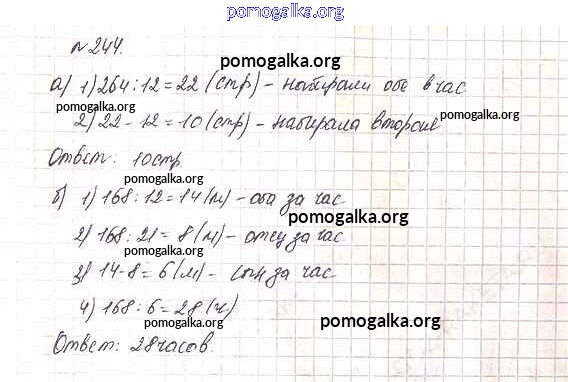 pomogalka.org
№ 244.
pomogalka.org
а) 1) 264 : 12 = 22 (стр) - набирали обе в час
pomogalka.org
2) 22 - 12 = 10 (стр) - набирала вторая
pomogalka.org
Ответ: 10 стр
pomogalka.org
б) 1) 168 : 12 = 14 (м) - оба за час
pomogalka.org
2) 168 : 21 = 8 (м) - отец за час
3) 14 - 8 = 6 (м) - сын за час
4) 168 : 6 = 28 (ч)
pomogalka.org
pomogalka.org
Ответ: 28 часов.